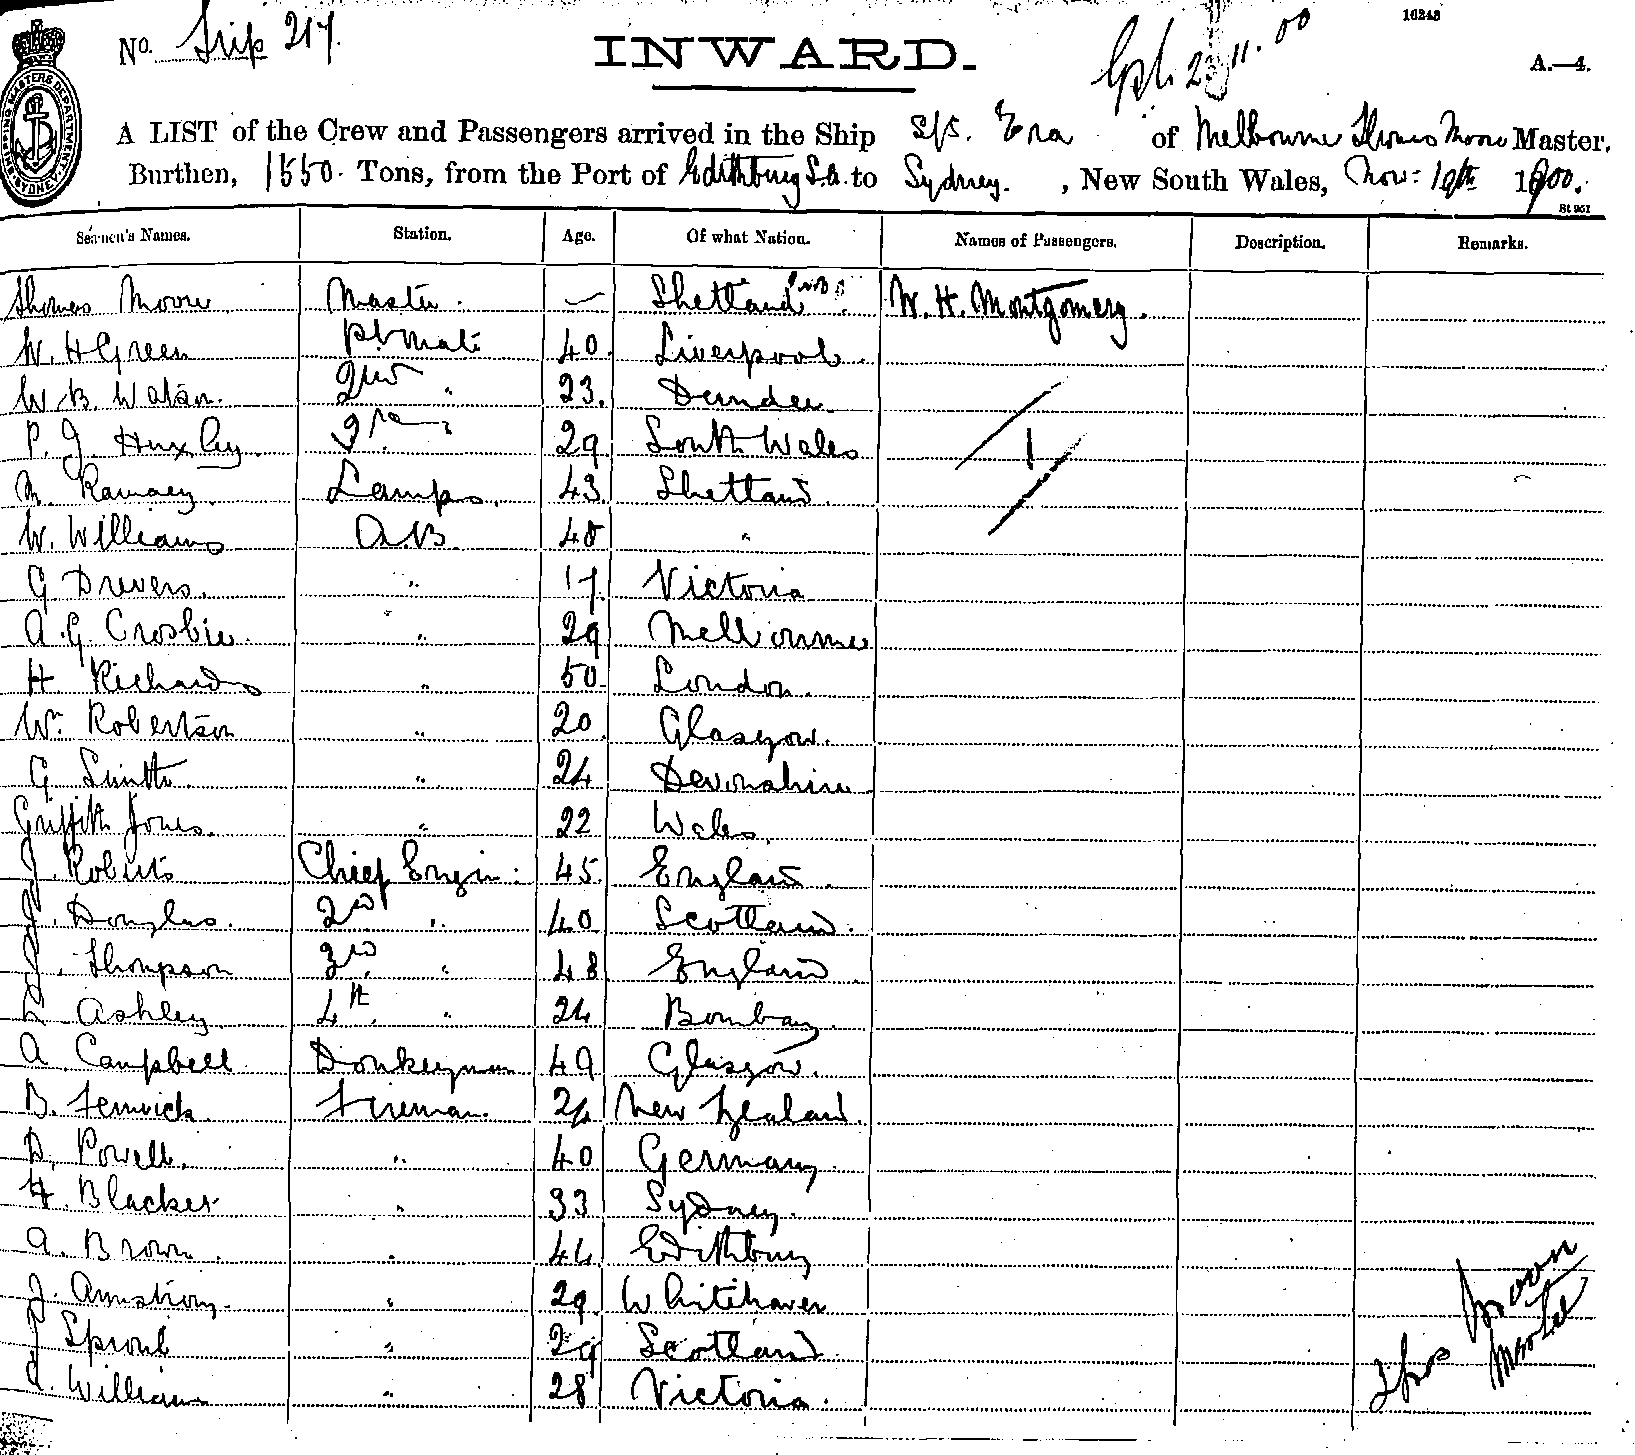 16248
No. Trip 217.
INWARD.
A.—4.
A LIST of the Crew and Passengers arrived in the Ship S/S. Era of Melbourne Thomas Moore Master.
Burthen, 1550 Tons, from the Port of Edithburg S.A. to Sydney. , New South Wales, Nov: 19th 1900.
St 951
Seamen's Names. Station. Age. Of what Nation. Names of Passengers. Description. Remarks.
Thomas Moore Master. — Shetland W. H. Montgomery.
W. H Green 1st Mate 40. Liverpool.
W. B. Watson. 2nd " 23. Dundee.
P. J. Huxley. 3rd " 29 South Wales 1
M. Ramsey. Lamps. 43. Shetland.
W. Williams A.B. 48 "
G Drevers. " 17. Victoria
A. G. Crosbie. " 29 Melbourne
H. Richards " 50. London.
Wm. Robertson " 20. Glasgow.
G. Smith. " 24 Devonshire
Griffith Jones. " 22 Wales.
J. Roberts Chief Engin: 45. England.
J. Douglas. 2nd " 40 Scotland.
J. Thompson 3rd " 48 England
Ashley 4th " 24 Bombay.
A. Campbell Donkeyman 49 Glasgow.
B. Fenwick. Fireman. 24 New Zealand.
D. Powell. " 40 Germany.
H. Blacker " 33 Sydney.
A. Brown. " 44 Edithburg
J. Armstrong. " 29. Whitehaven
J Sproul " 29 Scotland.
William " 28 Victoria.
Thos Moore
Master